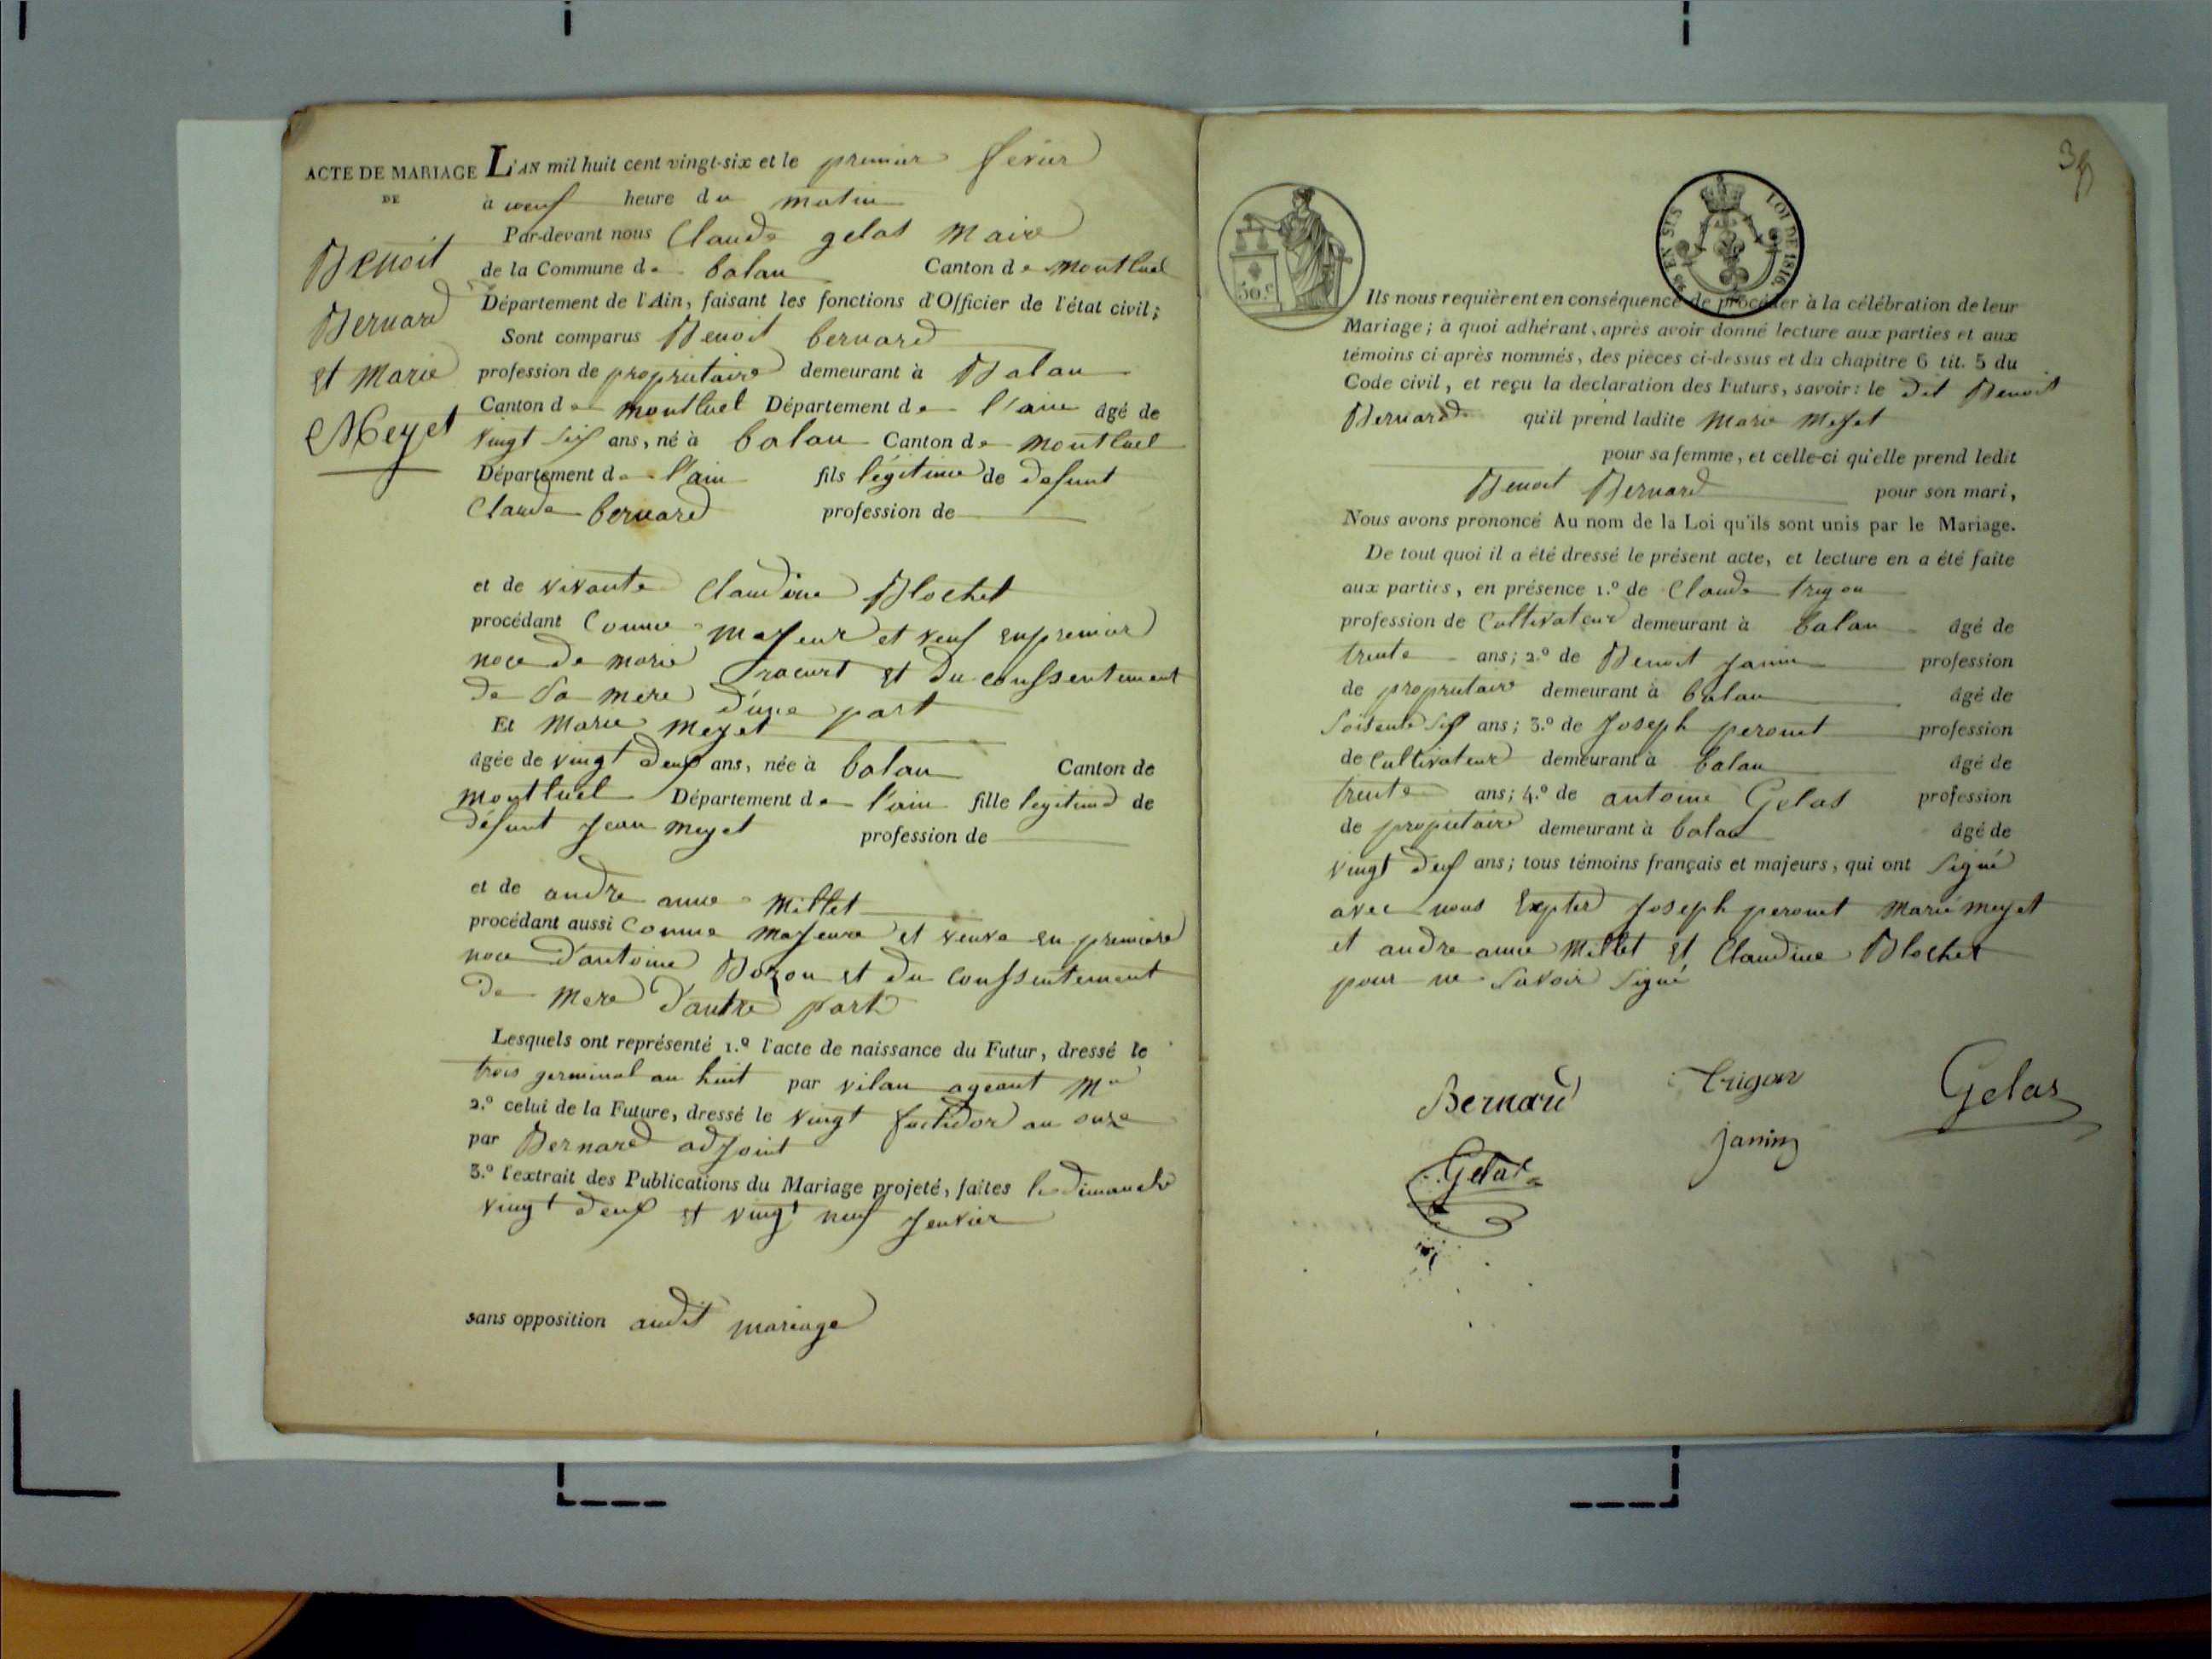 ACTE DE MARIAGE
DE
Benoit
Bernard
et Marie
Meyet
L'AN mil huit cent vingt-six et le premier fevier
à neuf heure du matin
Par-devant nous Claude gelas Maire
de la Commune de balan Canton de Montluel
Département de l'Ain, faisant les fonctions d'Officier de l'état civil;
Sont comparus Benoit bernard
profession de propriétaire demeurant à Balan
Canton de montluel Département de l'ain âgé de
vingt six ans, né à balan Canton de montluel
Département de l'ain fils légitime de defunt
Claude bernard profession de
et de vivante Claudine Blochet
procédant comme majeur et veuf en premier
noce de marie et du conssentement
de sa mere d'une part
Et Marie meyet
âgée de vingt deux ans, née à balan Canton de
montluel Département de l'ain fille legitime de
défunt jean meyet profession de
et de andre anne Millet
procédant aussi comme majeure et veuve en premiere
noce d'antoine Bozon et du conssentement
de mere d'autre part
Lesquels ont représenté 1.º l'acte de naissance du Futur, dressé le
trois germinal an huit par vilan ageant Mre
2.º celui de la Future, dressé le vingt fructidor an onze
par Bernard adjoint
3.º l'extrait des Publications du Mariage projeté, faites les dimanche
vingt deux et vingt neuf jenvier
sans opposition audit mariage
50.c
EN SUS LOI DE 1816.
Ils nous requièrent en conséquence de procéder à la célébration de leur
Mariage; à quoi adhérant, après avoir donné lecture aux parties et aux
témoins ci-après nommés, des pièces ci-dessus et du chapitre 6 tit. 5 du
Code civil, et reçu la declaration des Futurs, savoir: le dit Benoit
Bernard qu'il prend ladite Marie Meyet
pour sa femme, et celle-ci qu'elle prend ledit
Benoit Bernard pour son mari,
Nous avons prononcé Au nom de la Loi qu'ils sont unis par le Mariage.
De tout quoi il a été dressé le présent acte, et lecture en a été faite
aux parties, en présence 1.º de Claude trigon
profession de Cultivateur demeurant à balan âgé de
trente ans; 2.º de Benoit janin profession
de propriétaire demeurant à balan âgé de
soisente six ans; 3.º de Joseph peronet profession
de cultivateur demeurant à balan âgé de
trente ans; 4.º de antoine Gelas profession
de propietaire demeurant à balan âgé de
vingt deux ans; tous témoins français et majeurs, qui ont signé
avec nous Exptés Joseph peronet marie meyet
et andre anne Millet et Claudine Blochet
pour ne savoir signé
Bernard trigon Gelas
Gelas janin